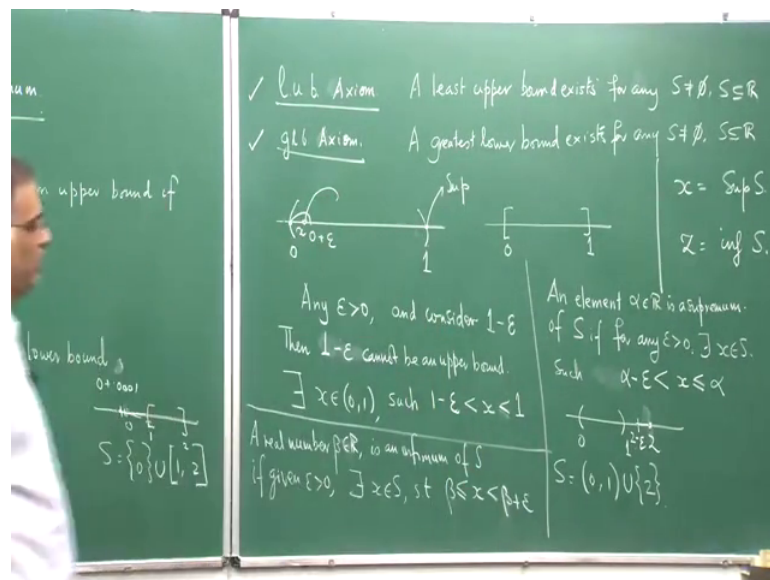 um
n upper bound if
lower bound
0+.0001
0 1 2
S = {0} ∪ [1, 2]
✓ l.u.b Axiom A least upper bound exists for any S≠∅, S⊆ℝ
✓ glb Axiom. A greatest lower bound exists for any S≠∅, S⊆ℝ
x = Sup S.
z = inf S.
Sup
x 0+ε
0 1
0 1
Any ε>0, and consider 1-ε
Then 1-ε cannot be an upper bound.
∃ x∈(0,1), such 1-ε < x < 1
A real number β∈ℝ, is an infimum of S
if given ε>0, ∃ x∈S, st β ≤ x < β+ε
An element α∈ℝ is a supremum.
of S if for any ε>0, ∃ x∈S.
Such α-ε < x ≤ α
0 1 2-ε 2
S = (0,1) ∪ {2}.